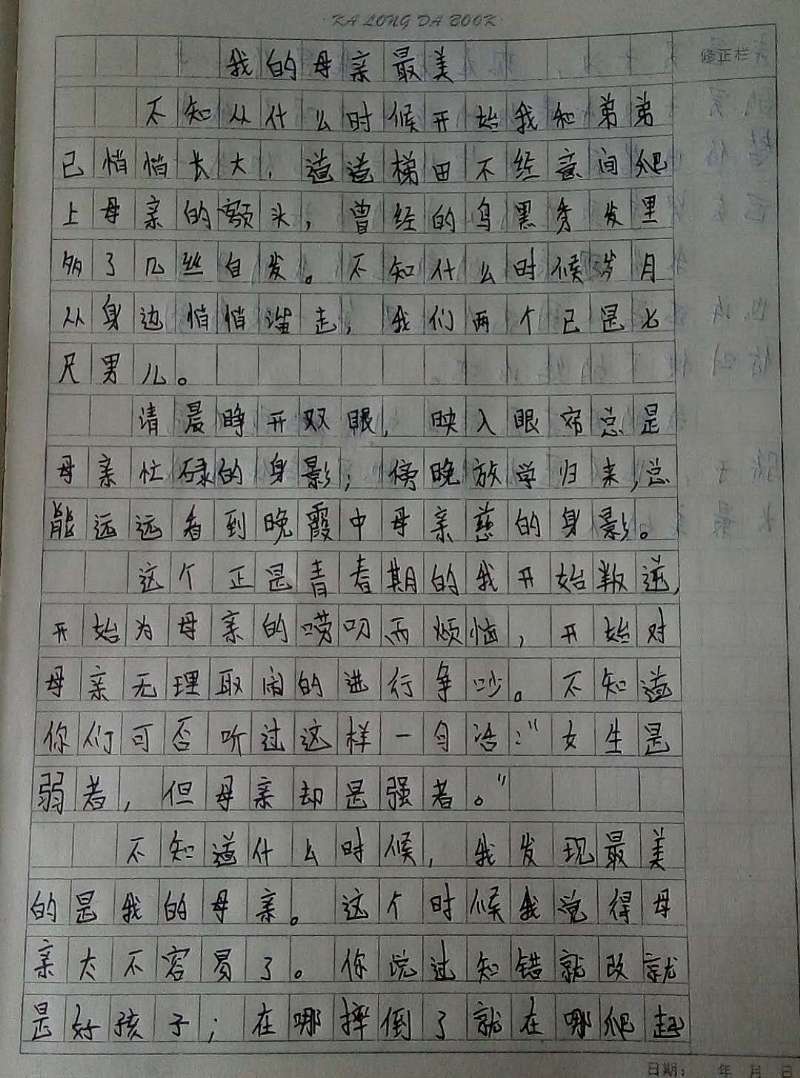 KA LONG DA BOOK
我的母亲最美
修正栏
不知从什么时候开始我和弟弟
已悄悄长大，道道梯田不经意间爬
上母亲的额头，曾经的乌黑秀发里
多了几丝白发。不知什么时候岁月
从身边悄悄溜走，我们两个已是七
尺男儿。
请晨睁开双眼，映入眼帘总是
母亲忙碌的身影；傍晚放学归来，总
能远远看到晚霞中母亲慈的身影。
这个正是青春期的我开始叛逆，
开始为母亲的唠叨而烦恼，开始对
母亲无理取闹的进行争吵。不知道
你们可否听过这样一句话：“女生是
弱者，但母亲却是强者。”
不知道什么时候，我发现最美
的是我的母亲。这个时候我觉得母
亲太不容易了。你说过知错就改就
是好孩子；在哪摔倒了就在哪爬起
日期： 年 月 日